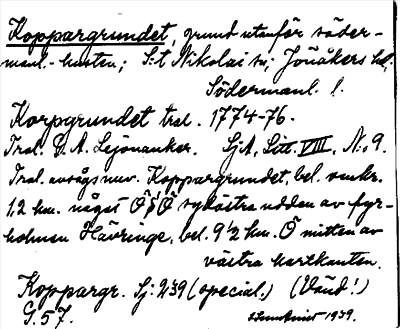 Koppargrundet, grund utanför söder-
manl.-kusten; S:t Nikolai sn; Jönåkers hd,
Södermanl. l.
Korpgrundet tral. 1774-76.
Tral. C. A. Lejonanker. Sj.A. Litt. VIII, No 9.
Tral. avsågs nuv. Koppargrundet, bel. omkr.
1,2 km. något Ö/S/Ö sydöstra udden av fyr-
holmen Hävringe, bel. 9 1/2 km. Ö mitten av
västra kartkanten.
Koppargr. Sj: 239 (special.) (Vänd!)
G. 57. 1939.